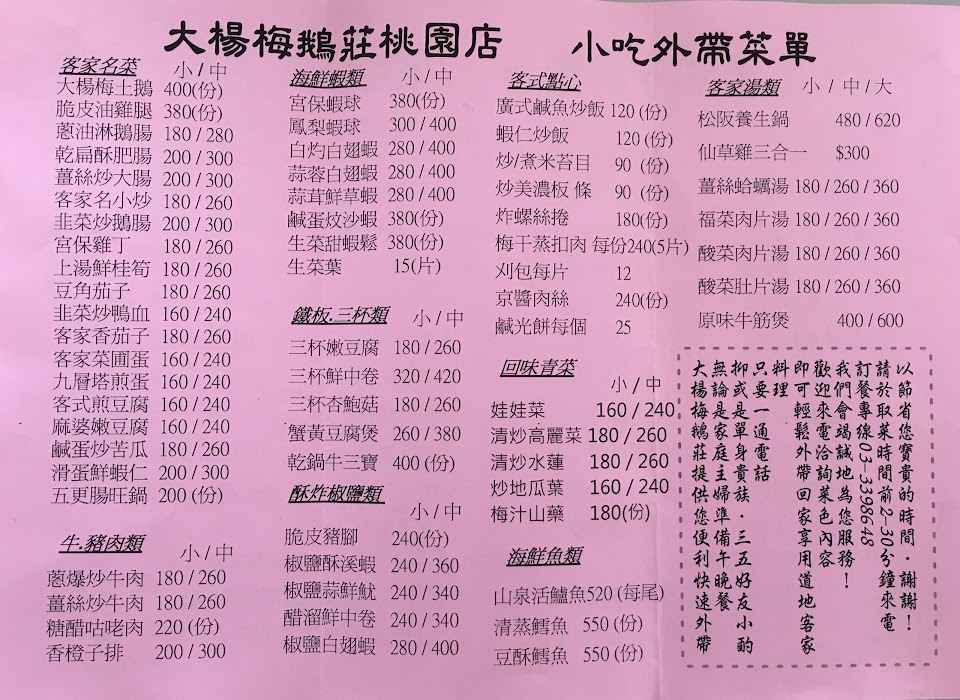 大楊梅鵝莊桃園店 小吃外帶菜單
客家名菜 小/中
大楊梅土鵝 400(份)
脆皮油雞腿 380(份)
蔥油淋鵝腸 180/280
乾扁酥肥腸 200/300
薑絲炒大腸 200/300
客家名小炒 180/260
韭菜炒鵝腸 200/300
宮保雞丁 180/260
上湯鮮桂筍 180/260
豆角茄子 180/260
韭菜炒鴨血 160/240
客家香茄子 180/260
客家菜圃蛋 160/240
九層塔煎蛋 160/240
客式煎豆腐 160/240
麻婆嫩豆腐 160/240
鹹蛋炒苦瓜 180/260
滑蛋鮮蝦仁 200/300
五更腸旺鍋 200 (份)
牛.豬肉類 小/中
蔥爆炒牛肉 180/260
薑絲炒牛肉 180/260
糖醋咕咾肉 220 (份)
香橙子排 200/300
海鮮蝦類 小/中
宮保蝦球 380(份)
鳳梨蝦球 300/400
白灼白翅蝦 280/400
蒜蓉白翅蝦 280/400
蒜茸鮮草蝦 280/400
鹹蛋炆沙蝦 380(份)
生菜甜蝦鬆 380(份)
生菜葉 15(片)
鐵板.三杯類 小/中
三杯嫩豆腐 180/260
三杯鮮中卷 320/420
三杯杏鮑菇 180/260
蟹黃豆腐煲 260/380
乾鍋牛三寶 400 (份)
酥炸椒鹽類 小/中
脆皮豬腳 240(份)
椒鹽酥溪蝦 240/360
椒鹽蒜鮮魷 240/340
醋溜鮮中卷 240/340
椒鹽白翅蝦 280/400
客式點心
廣式鹹魚炒飯 120 (份)
蝦仁炒飯 120 (份)
炒/煮米苔目 90 (份)
炒美濃板 條 90 (份)
炸螺絲捲 180(份)
梅干蒸扣肉 每份240(5片)
刈包每片 12
京醬肉絲 240(份)
鹹光餅每個 25
回味青菜 小/中
娃娃菜 160/240
清炒高麗菜 180/260
清炒水蓮 180/260
炒地瓜葉 160/240
梅汁山藥 180(份)
海鮮魚類
山泉活鱸魚520 (每尾)
清蒸鱈魚 550 (份)
豆酥鱈魚 550 (份)
客家湯類 小/中/大
松阪養生鍋 480/620
仙草雞三合一 $300
薑絲蛤蠣湯 180/260/360
福菜肉片湯 180/260/360
酸菜肉片湯 180/260/360
酸菜肚片湯 180/260/360
原味牛筋煲 400/600
大楊梅鵝莊提供您便利快速外帶
無論是家庭主婦準備午晚餐
抑或是單身貴族．三五好友小酌
只要一通電話
即可輕鬆外帶回家享用道地客家
料理
歡迎來電洽詢菜色內容
我們會竭誠地為您服務！
訂餐專線03-3398648
請於取菜時間前2-30分鐘來電
以節省您寶貴的時間．謝謝！